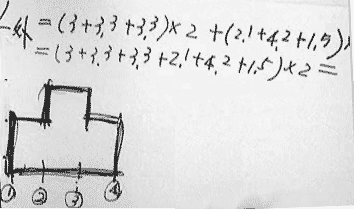 = (3+3,3+3,3)×2 + (2,1+4,2+1,5)
= (3+3,3+3,3+2,1+4,2+1,5)×2 =
① ② ③ ④